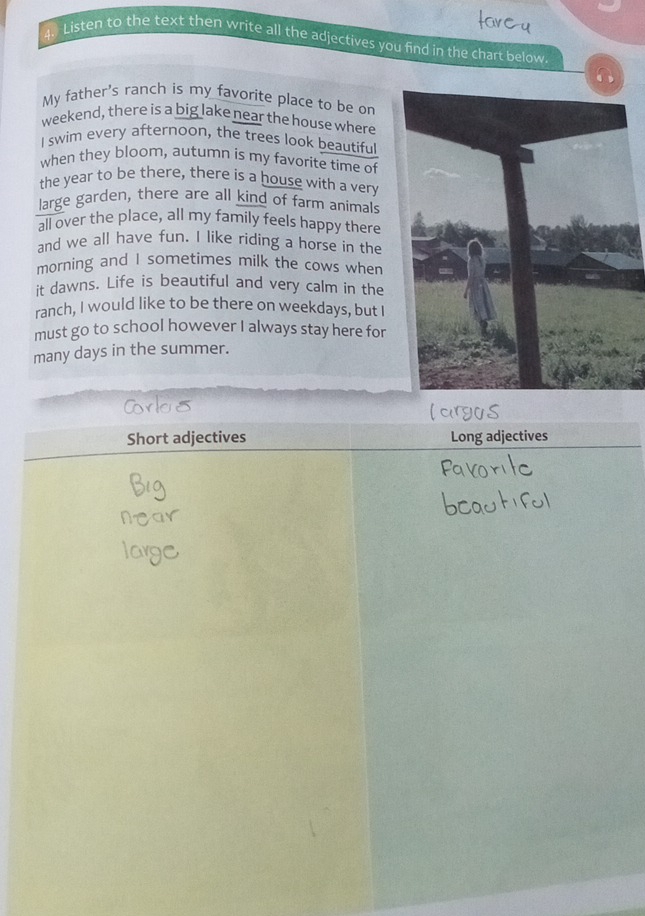 tarea
4. Listen to the text then write all the adjectives you find in the chart below.
My father's ranch is my favorite place to be on
weekend, there is a big lake near the house where
I swim every afternoon, the trees look beautiful
when they bloom, autumn is my favorite time of
the year to be there, there is a house with a very
large garden, there are all kind of farm animals
all over the place, all my family feels happy there
and we all have fun. I like riding a horse in the
morning and I sometimes milk the cows when
it dawns. Life is beautiful and very calm in the
ranch, I would like to be there on weekdays, but I
must go to school however I always stay here for
many days in the summer.
Cortas largas
Short adjectives Long adjectives
Big Favorite
near beautiful
large